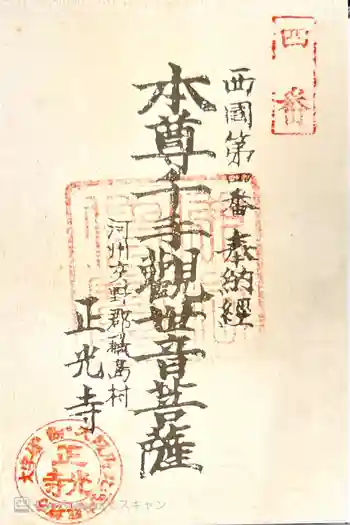 四番
西國第四番 奉納經
本尊千手觀世音菩薩
河州交野郡磯島村
正光寺
正光寺
スキャン